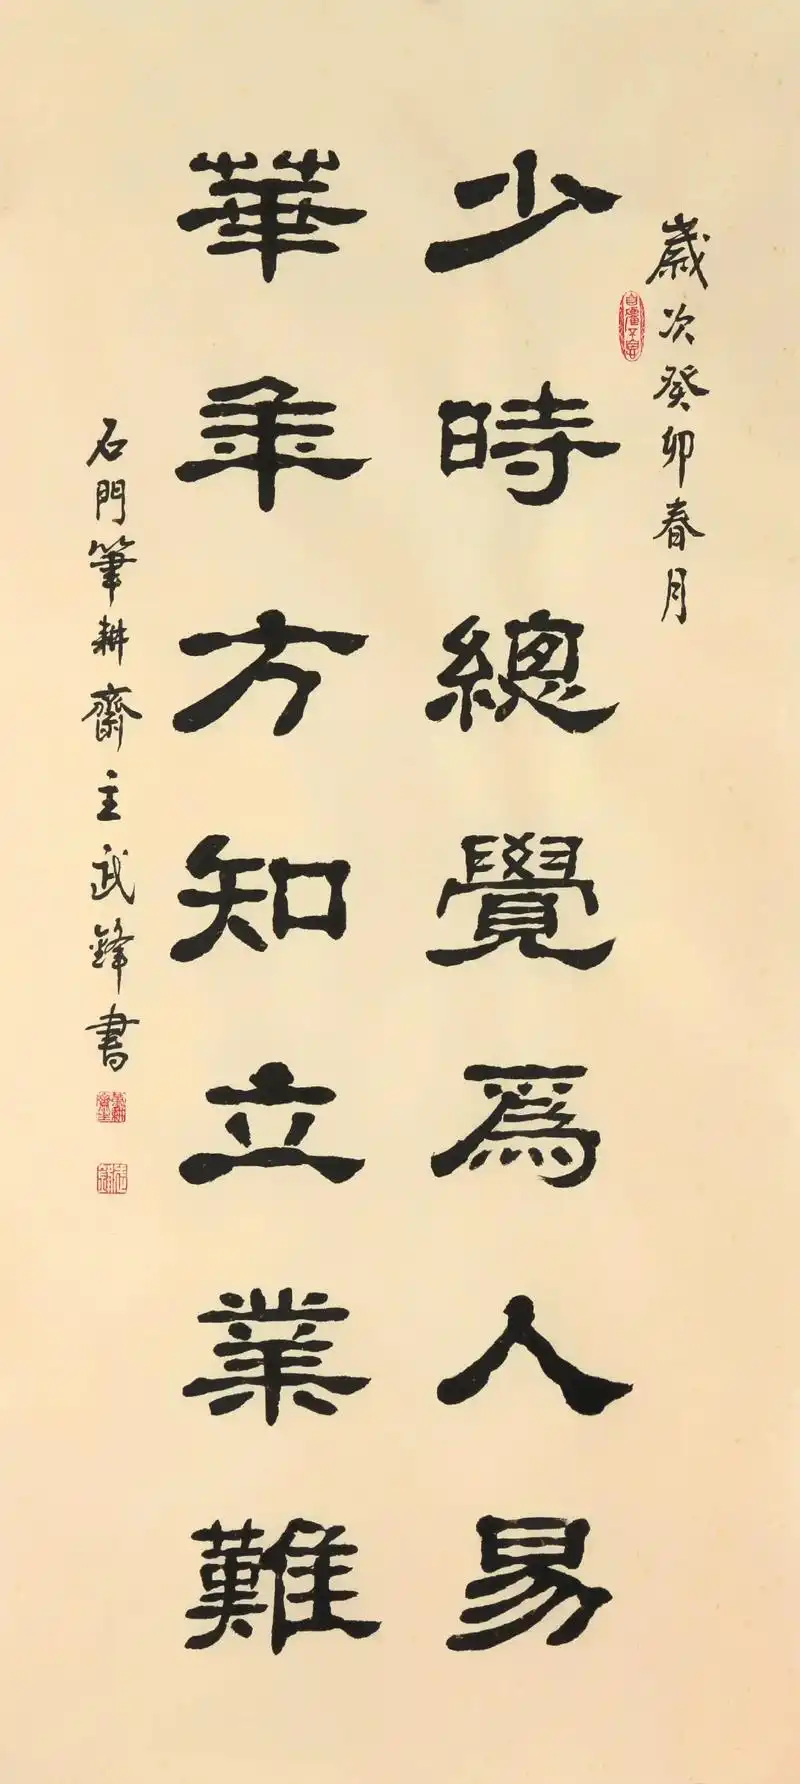 歲次癸卯春月
少時總覺爲人易
華年方知立業難
石門筆耕齋主武鋒書